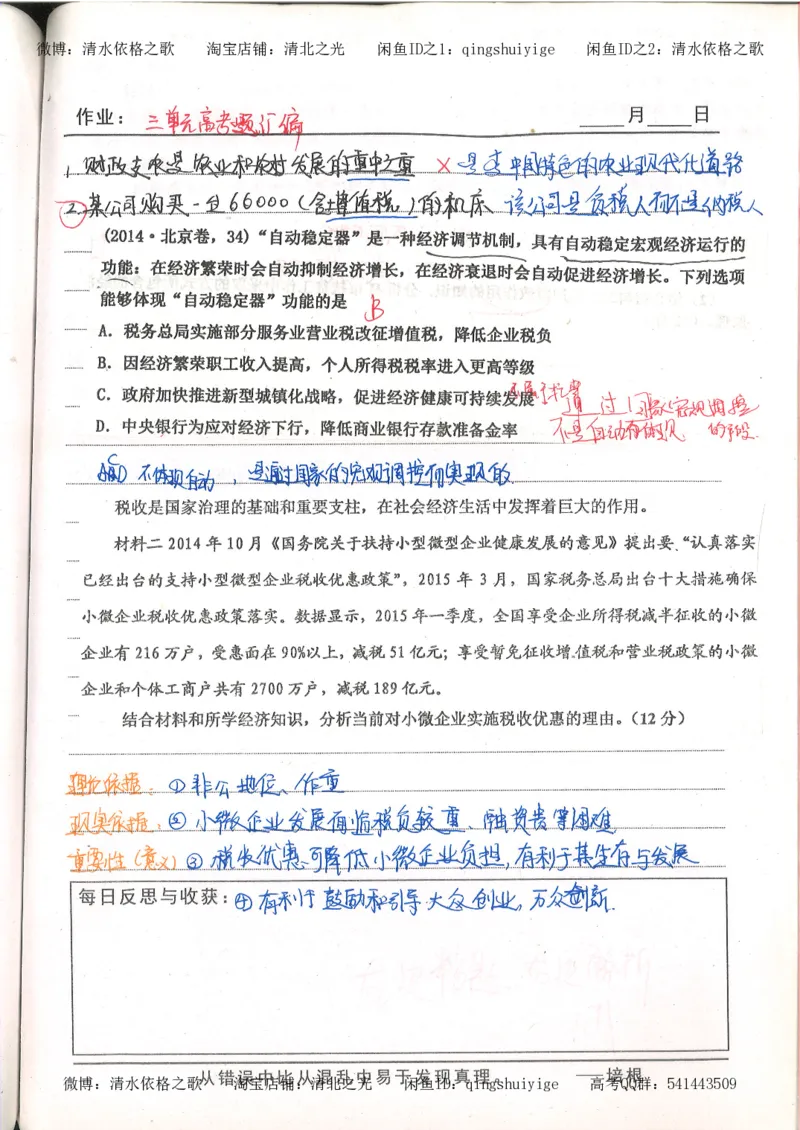 微博：清水依格之歌 淘宝店铺：清北之光 闲鱼ID之1：qingshuiyige 闲鱼ID之2：清水依格之歌
作业： 三单元高考题汇编 月 日
1. 财政支农是农业和农村发展的重中之重 × 是走中国特色的农业现代化道路
2. 某公司购买一台66000（含增值税）的机床 该公司是负税人而不是纳税人
(2014·北京卷，34)“自动稳定器”是一种经济调节机制，具有自动稳定宏观经济运行的
功能：在经济繁荣时会自动抑制经济增长，在经济衰退时会自动促进经济增长。下列选项
能够体现“自动稳定器”功能的是 B
A．税务总局实施部分服务业营业税改征增值税，降低企业税负
B．因经济繁荣职工收入提高，个人所得税税率进入更高等级
C．政府加快推进新型城镇化战略，促进经济健康可持续发展
通过国家宏观调控
D．中央银行为应对经济下行，降低商业银行存款准备金率 不是自动 的手段.
ACD 不体现自动，是通过国家的宏观调控而实现的.
税收是国家治理的基础和重要支柱，在社会经济生活中发挥着巨大的作用。
材料二 2014年10月《国务院关于扶持小型微型企业健康发展的意见》提出要“认真落实
已经出台的支持小型微型企业税收优惠政策”，2015年3月，国家税务总局出台十大措施确保
小微企业税收优惠政策落实。数据显示，2015年一季度，全国享受企业所得税减半征收的小微
企业有216万户，受惠面在90%以上，减税51亿元；享受暂免征收增值税和营业税政策的小微
企业和个体工商户共有2700万户，减税189亿元。
结合材料和所学经济知识，分析当前对小微企业实施税收优惠的理由。（12分）
理论依据：①非公地位、作重
现实依据：②小微企业发展面临税负较重、融资贵等困难
重要性（意义）③税收优惠可降低小微企业负担，有利于其生存与发展
每日反思与收获：④有利于鼓励和引导大众创业，万众创新.
从错误中比从混乱中易于发现真理。 ——培根
微博：清水依格之歌 淘宝店铺：清北之光 闲鱼ID：qingshuiyige 高考QQ群：541443509